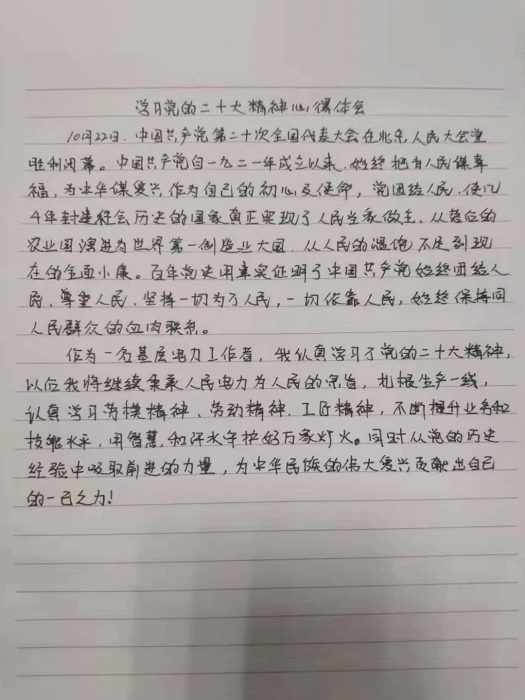 学习党的二十大精神心得体会
10月22日，中国共产党第二十次全国代表大会在北京人民大会堂
胜利闭幕。中国共产党自一九二一年成立以来，始终把为人民谋幸
福，为中华谋复兴作为自己的初心及使命，党团结人民，使几
千年封建社会历史的国家真正实现了人民当家做主、从落后的
农业国演进为世界第一制造业大国、从人民的温饱不足到现
在的全面小康。百年党史用事实证明了中国共产党始终团结人
民、尊重人民，坚持一切为了人民，一切依靠人民，始终保持同
人民群众的血肉联系。
作为一名基层电力工作者，我认真学习了党的二十大精神，
以后我将继续秉承人民电力为人民的宗旨，扎根生产一线，
认真学习劳模精神、劳动精神、工匠精神，不断提升业务和
技能水平，用智慧和汗水守护好万家灯火。同时从党的历史
经验中吸取前进的力量，为中华民族的伟大复兴贡献出自己
的一己之力！